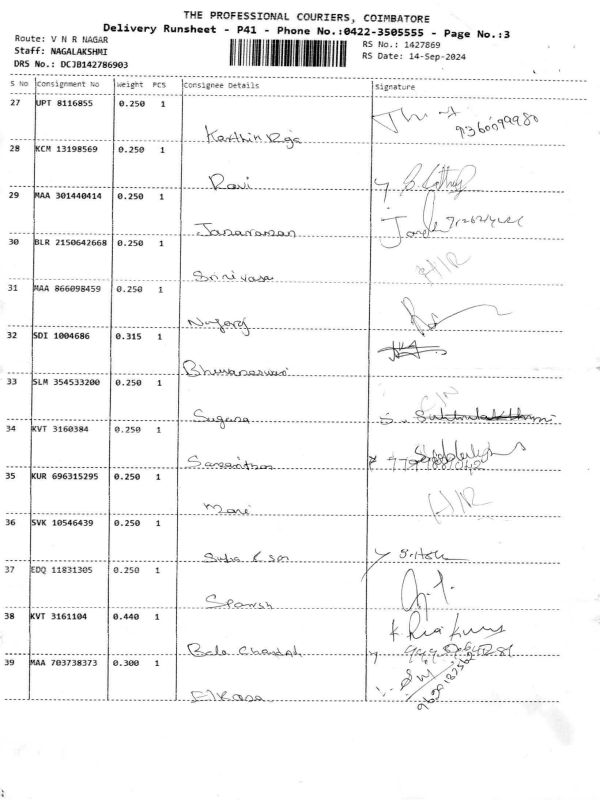 THE PROFESSIONAL COURIERS, COIMBATORE
Delivery Runsheet - P41 - Phone No.:0422-3505555 - Page No.:3
Route: V N R NAGAR
RS No.: 1427869
Staff: NAGALAKSHMI
RS Date: 14-Sep-2024
DRS No.: DCJB142786903
S No Consignment No Weight PCS Consignee Details Signature
27 UPT 8116855 0.250 1
9360099980
Karthik Raja
28 KCM 13198569 0.250 1
Ravi
29 MAA 301440414 0.250 1
Janaraman
30 BLR 2150642668 0.250 1
H/R
Srinivasa
31 MAA 866098459 0.250 1
Nagaraj
32 SDI 1004686 0.315 1
Bhuvaneswari
33 SLM 354533200 0.250 1
Sugana
34 KVT 3160384 0.250 1
35 KUR 696315295 0.250 1
H/R
Mani
36 SVK 10546439 0.250 1
37 EDQ 11831305 0.250 1
38 KVT 3161104 0.440 1
Bala
39 MAA 703738373 0.300 1